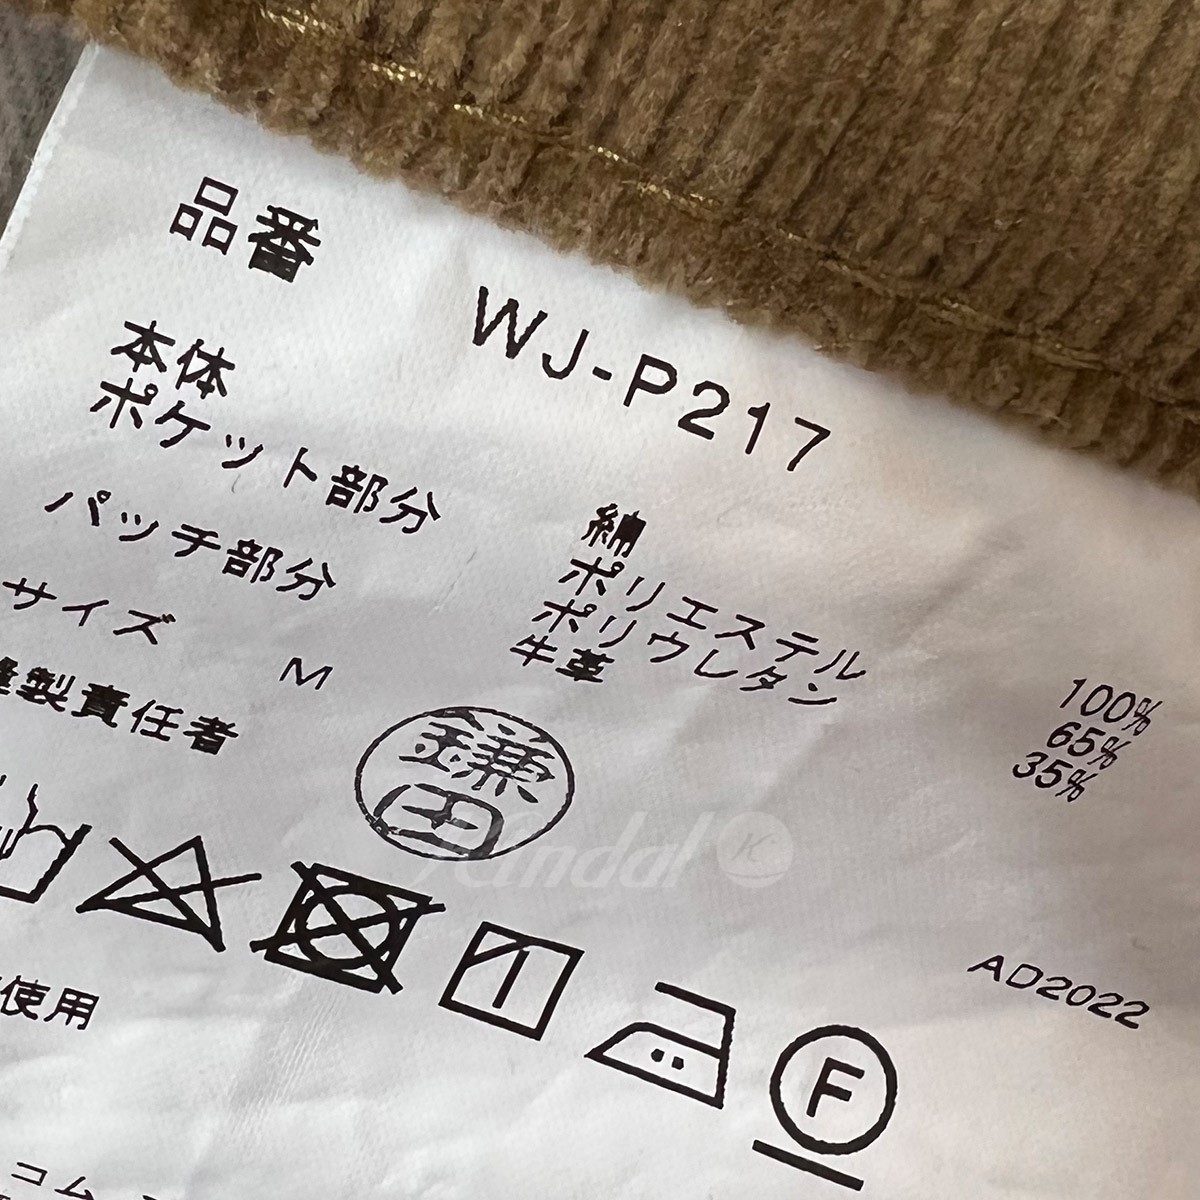 品番 WJ-P217
本体 綿 100%
ポケット部分 ポリエステル 65%
ポリウレタン 35%
パッチ部分 牛革
サイズ M
縫製責任者 鎌田
Kindal K
F
AD2022
使用
コム